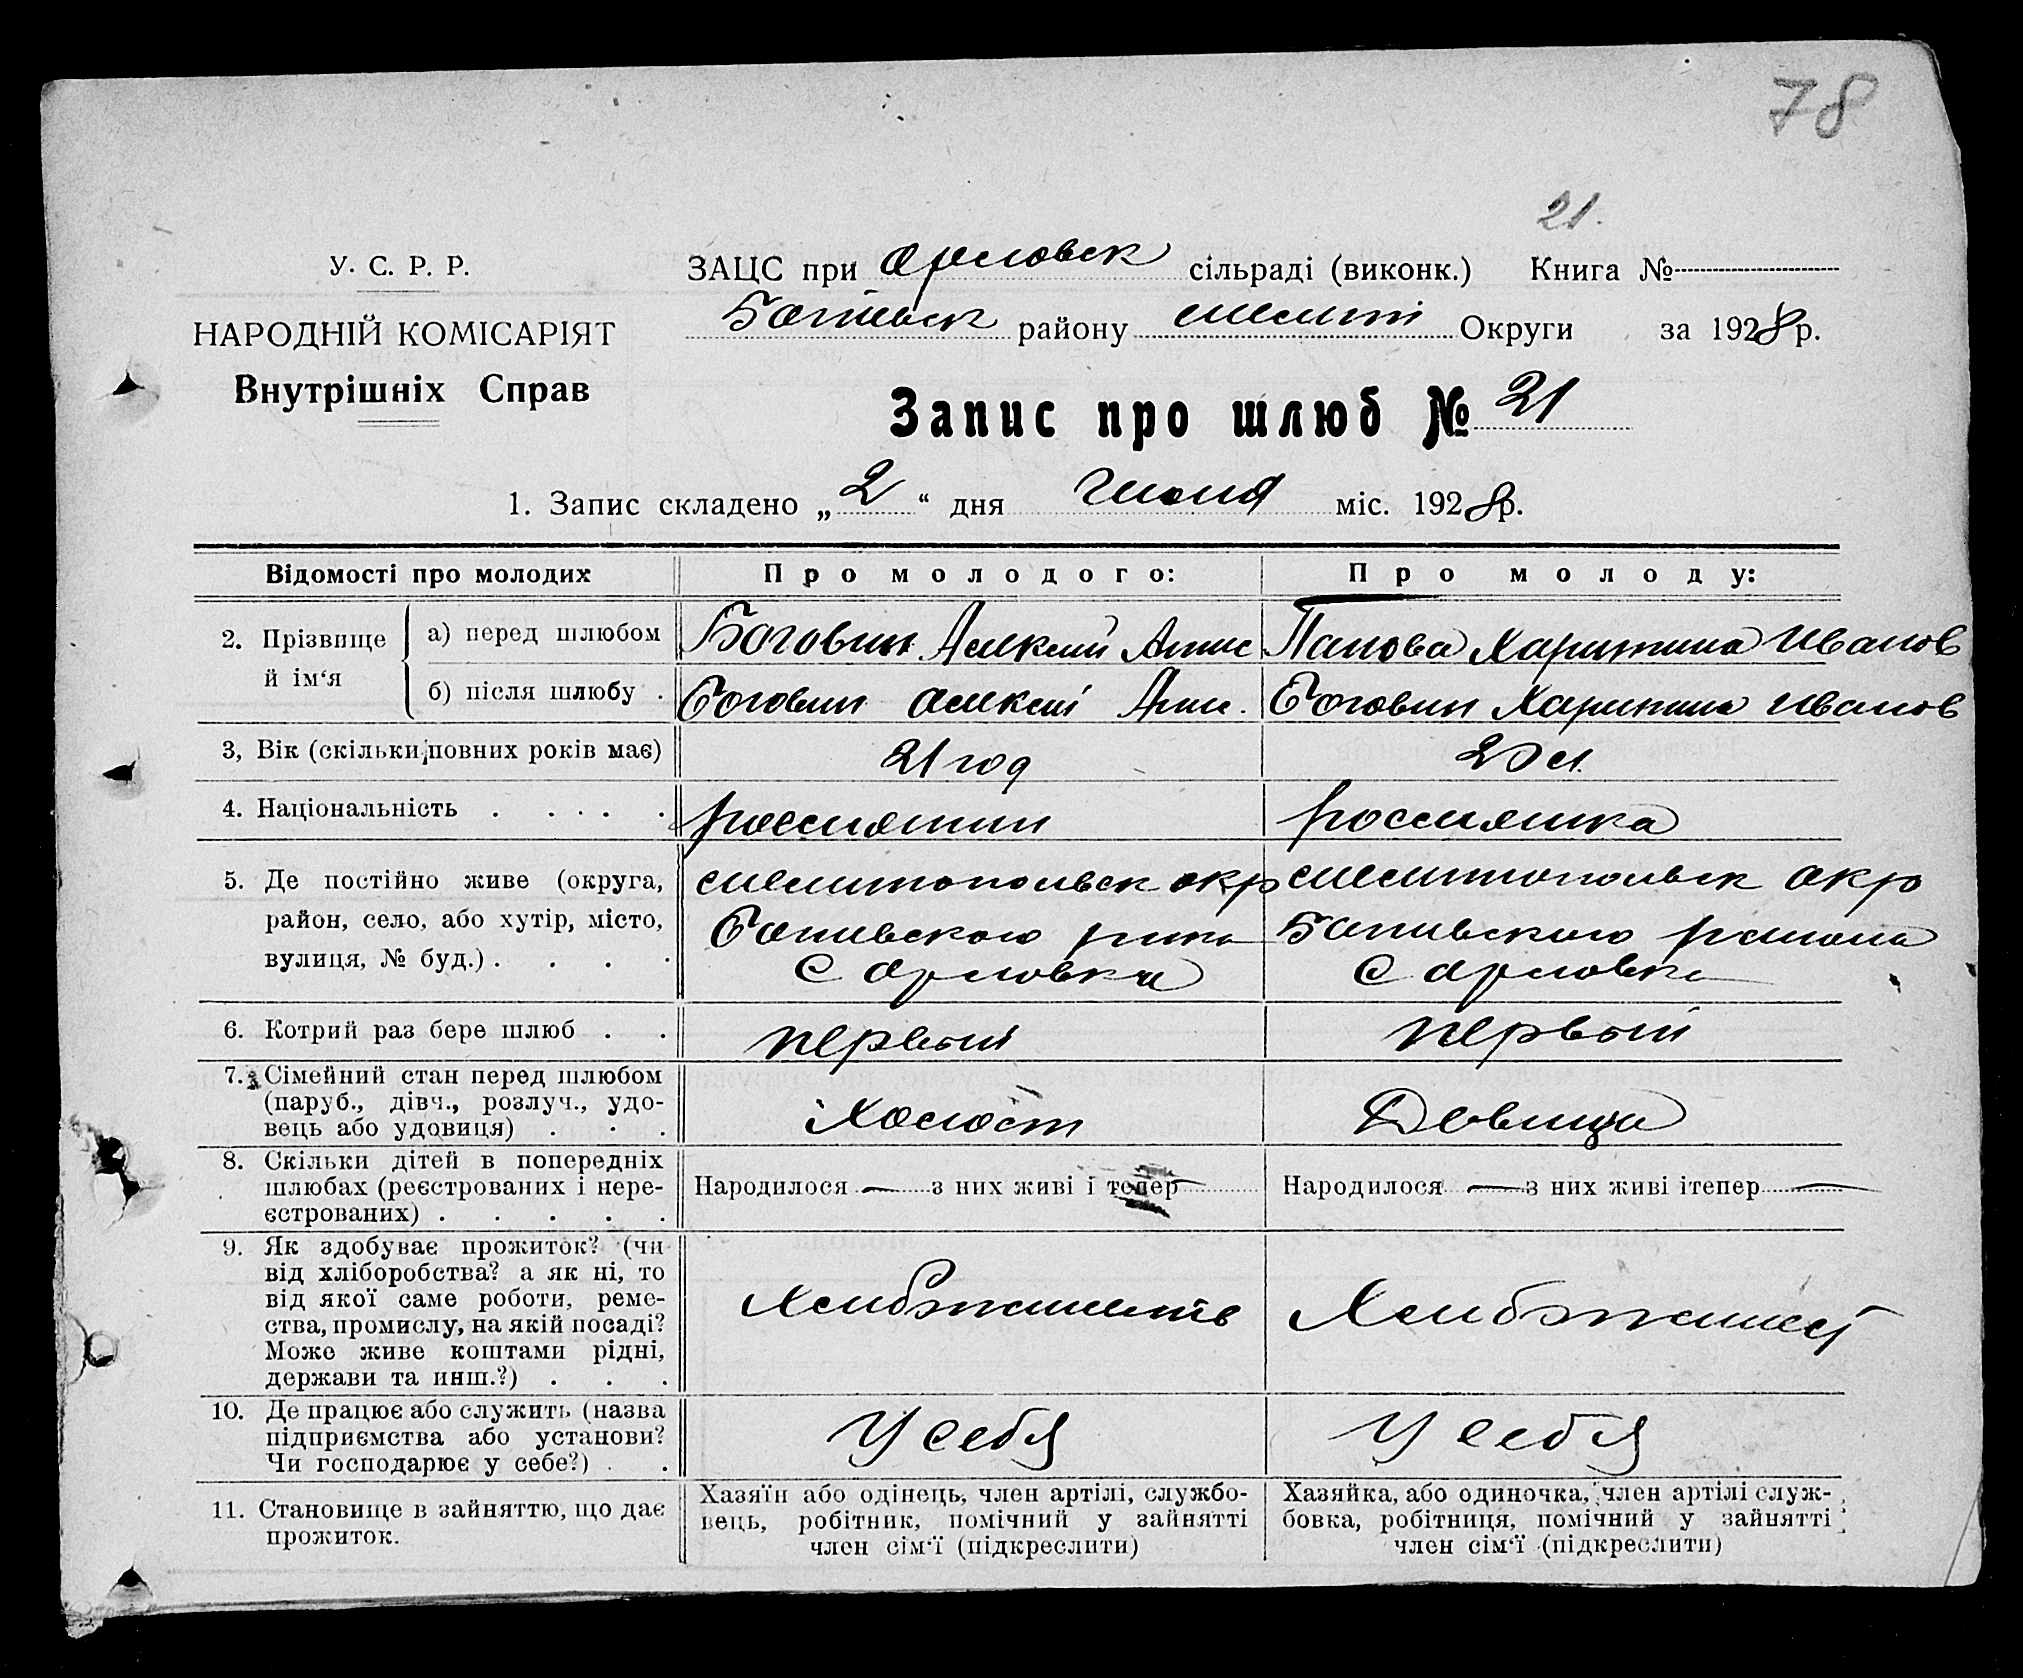 78
21.
У. С. Р. Р.
НАРОДНІЙ КОМІСАРІЯТ
Внутрішніх Справ
ЗАЦС при Орловск сільраді (виконк.) Книга №
району Меліт Округи за 1928 р.
Запис про шлюб № 21
1. Запис складено „2“ дня Июня міс. 1928 р.
Відомості про молодих Про молодого: Про молоду:
2. Прізвище й ім‘я
а) перед шлюбом Боговин Алексей Панова Харитина Иванов
б) після шлюбу . Боговин Алексей Боговин Харитина Иванов
3, Вік (скільки повних років має) 21 год 20 л.
4. Національність . . . . . россиянин россиянка
5. Де постійно живе (округа, Мелитопольск окр Мелитопольск окр
район, село, або хутір, місто, района
вулиця, № буд.) . . . . с Орловка с Орловка
6. Котрий раз бере шлюб . . первый первый
7. Сімейний стан перед шлюбом
(паруб., дівч., розлуч., удо-
вець або удовиця) . . . Холост Девица
8. Скільки дітей в попередніх
шлюбах (реєстрованих і нере-
єстрованих) . . . . . Народилося — з них живі і тепер — Народилося — з них живі ітепер —
9. Як здобуває прожиток? (чи
від хліборобства? а як ні, то
від якої саме роботи, реме-
ства, промислу, на якій посаді?
Може живе коштами рідні,
держави та инш.?) . . .
10. Де працює або служить (назва
підприємства або установи?
Чи господарює у себе?) . . У себя У себя
11. Становище в зайняттю, що дає
прожиток.
Хазяїн або одінець, член артілі, службо-
вець, робітник, помічний у зайнятті
член сім‘ї (підкреслити)
Хазяйка, або одиночка, член артілі служ-
бовка, робітниця, помічний у зайнятті
член сім‘ї (підкреслити)